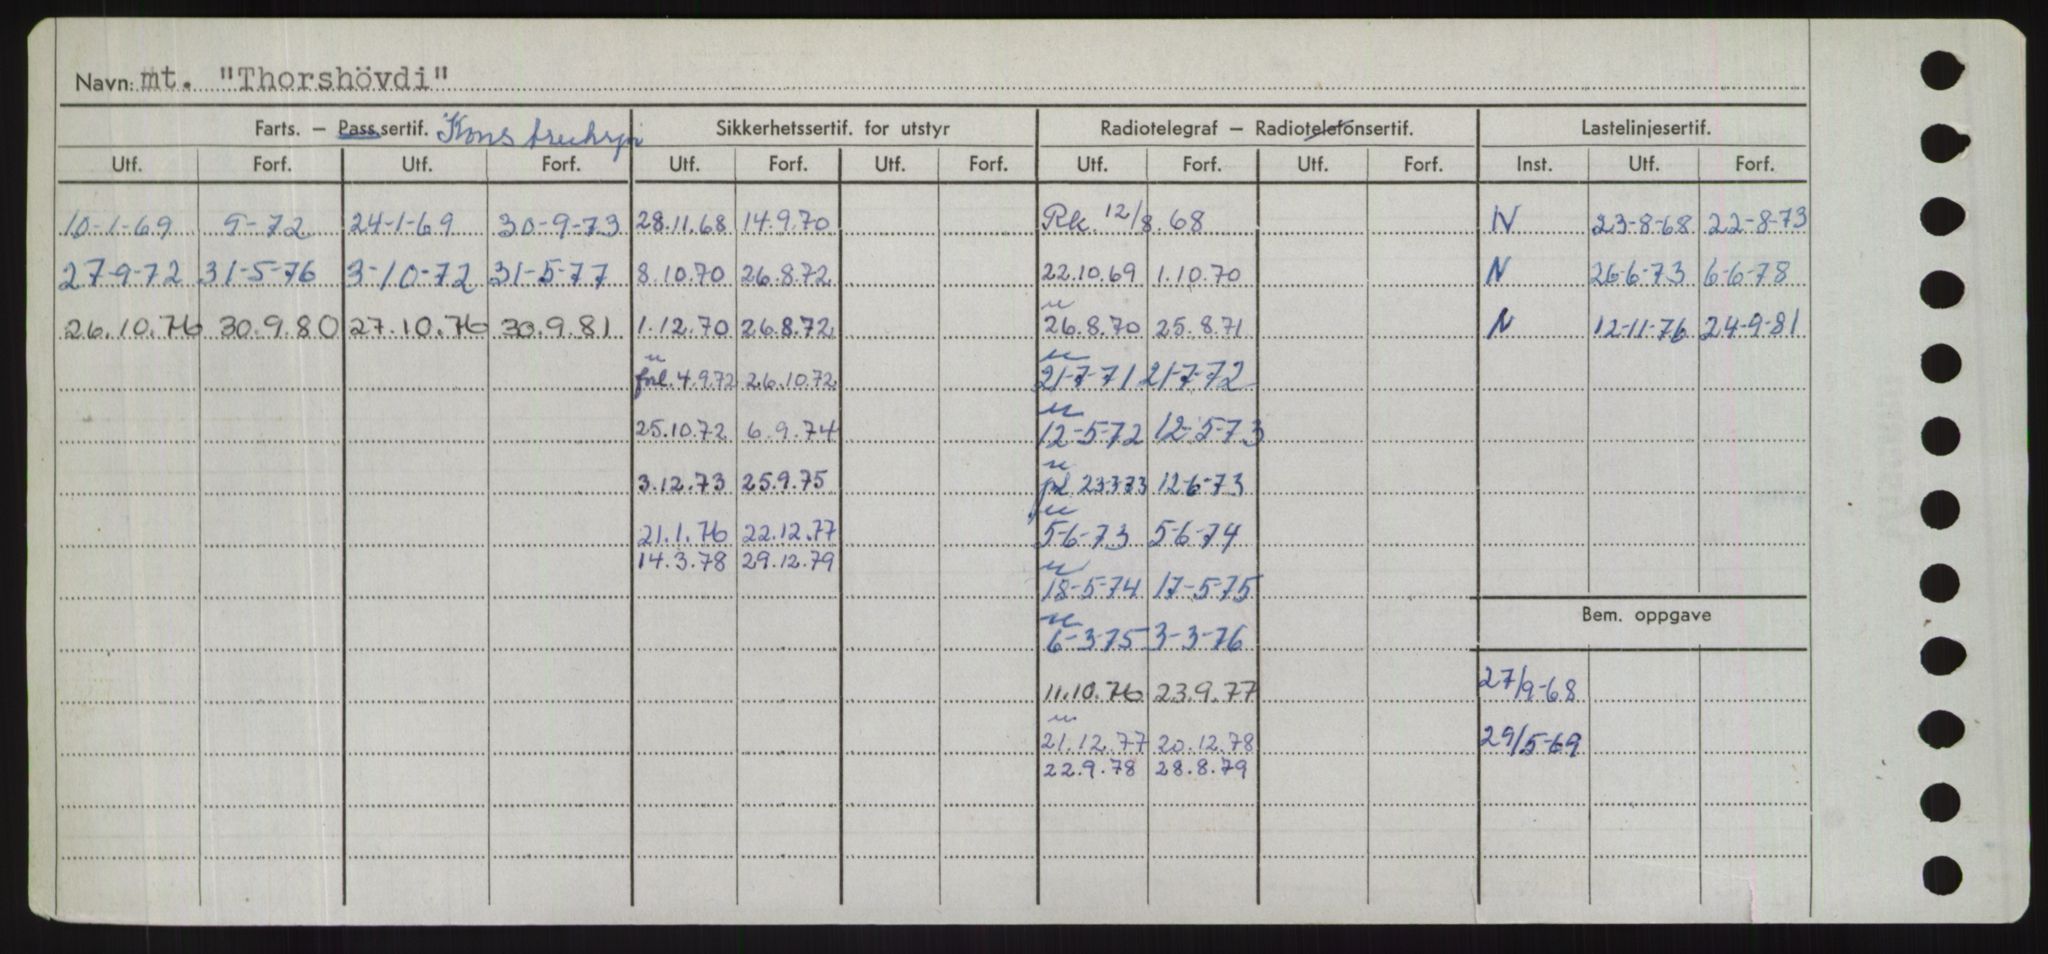 Navn: mt. "Thorshövdi"
Farts. – Pass.sertif. Sikkerhetssertif. for utstyr Radiotelegraf – Radiotelefonsertif. Lastelinjesertif.
Utf. Forf. Utf. Forf. Utf. Forf. Utf. Forf. Utf. Forf. Utf. Forf. Inst. Utf. Forf.
10-1-69 9-72 24-1-69 30-9-73 28.11.68 14.9.70 Rk. 12/8.68 N 23-8-68 22-8-73
27-9-72 31-5-76 3-10-72 31-5-77 8.10.70 26.8.72 22.10.69 1.10.70 N 26-6-73 6-6-78
26.10.76 30.9.80 27.10.76 30.9.81 1.12.70 26.8.72 26.8.70 25.8.71 N 12-11-76 24-9-81
forl. 4.9.72 26.10.72 21-7-71 21-7-72
25.10.72 6.9.74 12-5-72 12-5-73
3.12.73 25.9.75 23-3-73 12-6-73
21.1.76 22.12.77 5-6-73 5-6-74
14.3.78 29.12.79
18-5-74 17-5-75
Bem. oppgave
6-3-75 3-3-76
11.10.76 23.9.77 27/9-68
21.12.77 20.12.78 29/5-69
22.9.78 28.8.79